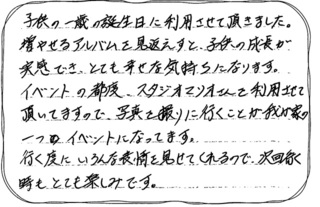 子供の一歳の誕生日に利用させて頂きました。
増やせるアルバムを見返えすと、子供の成長が
実感でき、とても幸せな気持ちになります。
イベントの都度、スタジオマリオさんを利用させて
頂いてますので、写真を撮りに行くことが我が家の
一つのイベントになってます。
行く度に いろんな表情を見せてくれるので、次回行く
時も とても楽しみです。